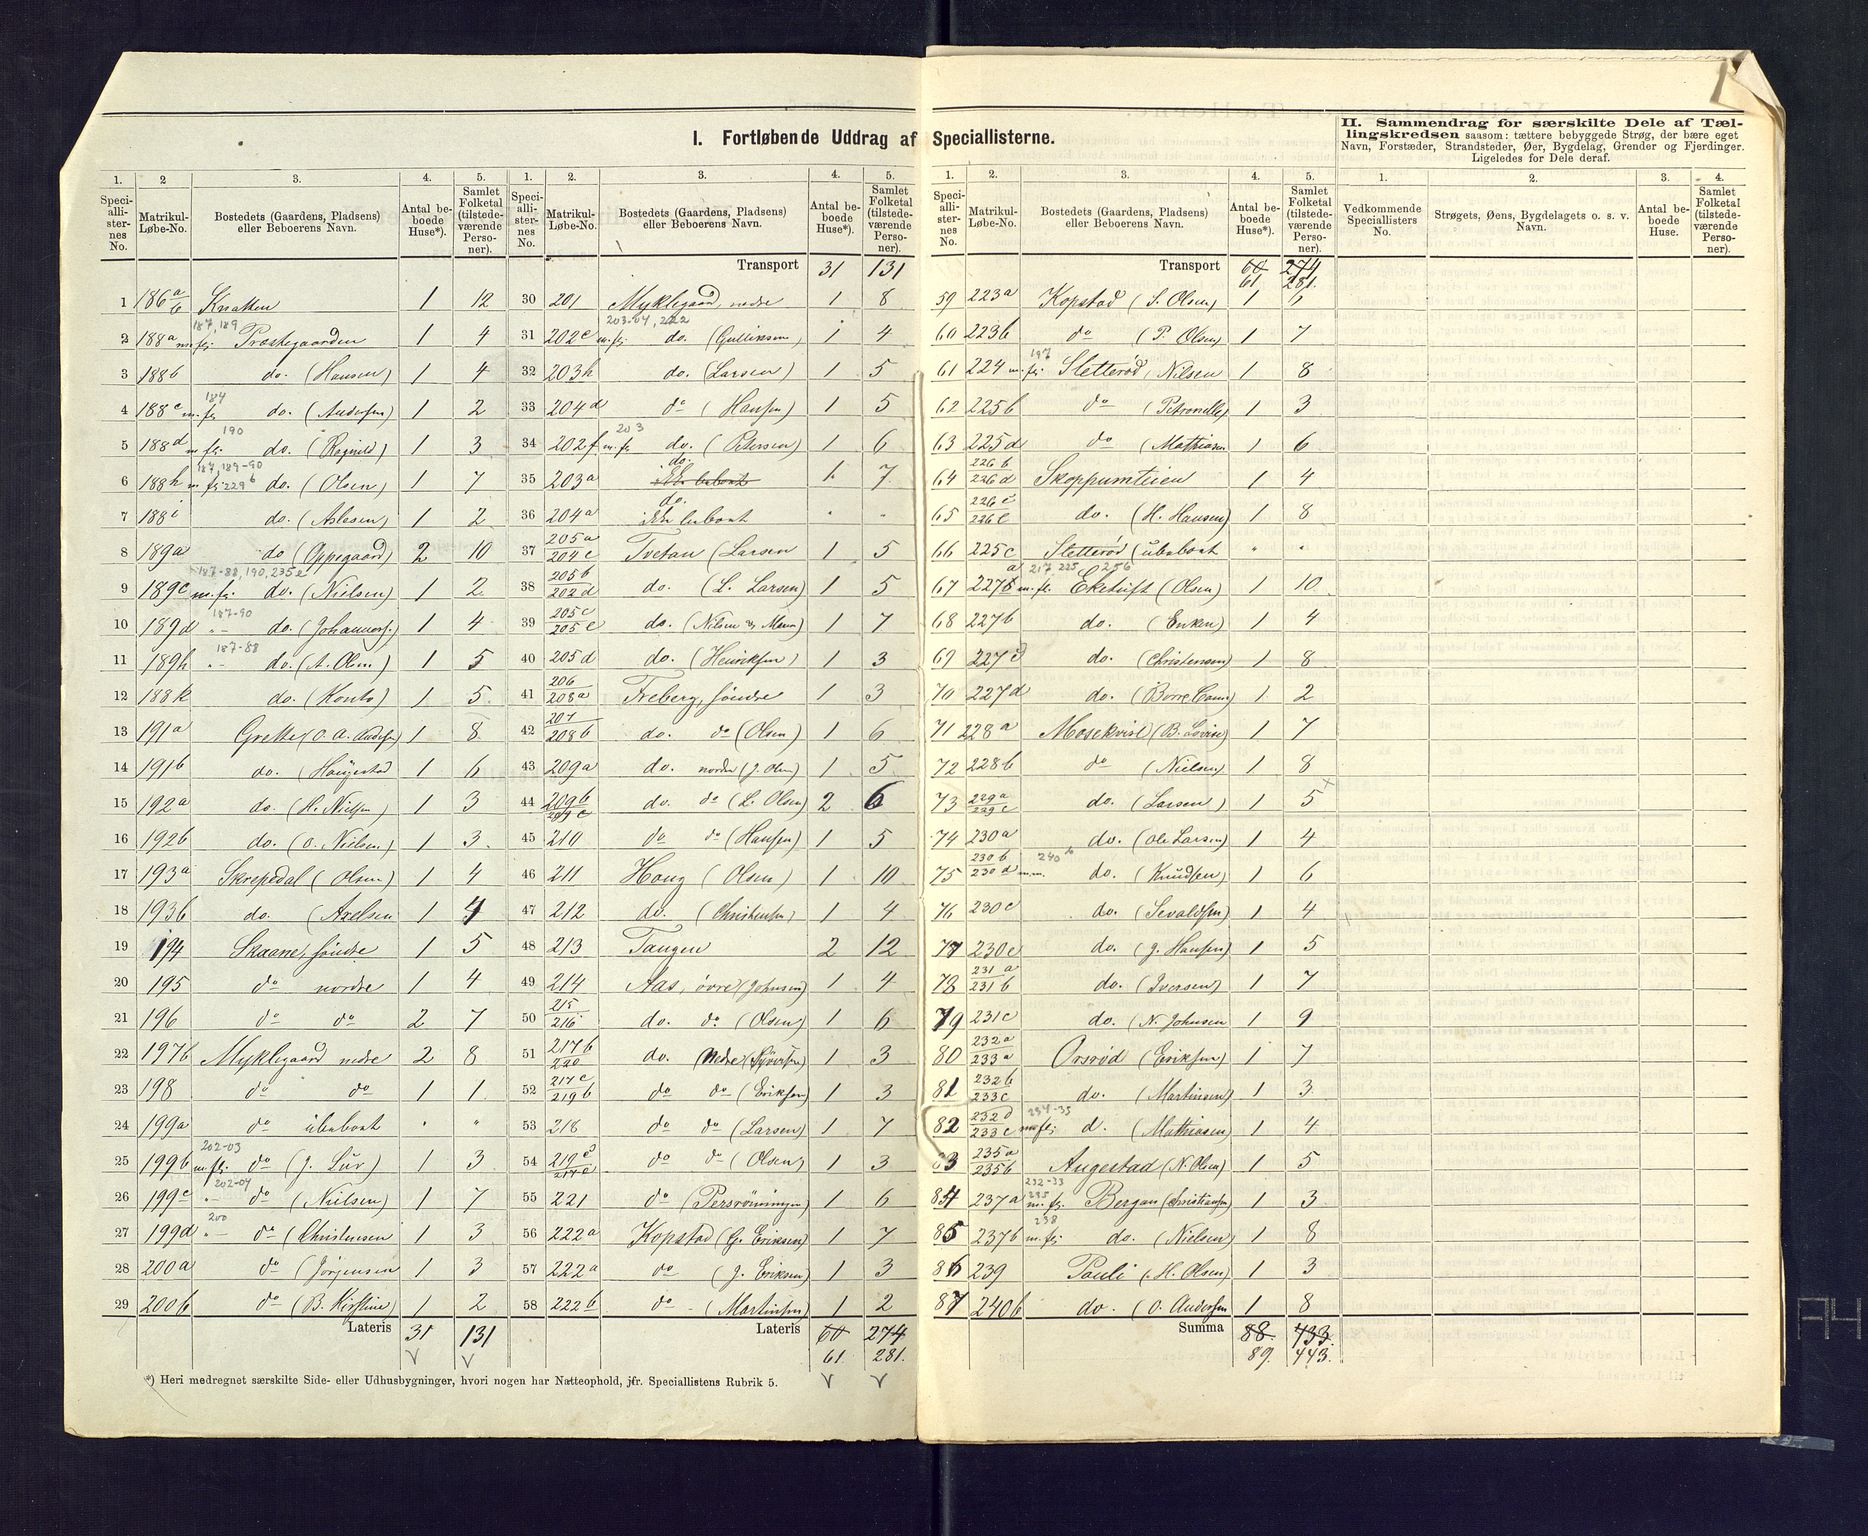 I. Fortløbende Uddrag af Speciallisterne.
II. Sammendrag for særskilte Dele af Tæl-
lingskredsen saasom: tættere bebyggede Strøg, der bære eget
Navn, Forstæder, Strandsteder, Øer, Bygdelag, Grender og Fjerdinger.
Ligeledes for Dele deraf.
1. 2 3. 4. 5.
Speciallisternes No. Matrikul-Løbe-No. Bostedets (Gaardens, Pladsens) eller Beboerens Navn. Antal beboede Huse*). Samlet Folketal (tilstedeværende Personer).
1 186 a/b Knatten 1 12
187, 189
2 188a m. fl. Præstegaarden 1 4
3 188b do. (Hansen) 1 4
184
4 188c m. fl. do. (Andersen) 1 2
190
5 188d m. fl. do. (Ragnild) 1 3
187, 189-90
6 188h m. fl. 229b do. (Olsen) 1 7
7 188i do. (Aslesen) 1 2
8 189a do (Oppegaard) 2 10
187-88, 190, 235e
9 189c m. fl. do. (Nielsen) 1 2
187-90
10 189d "- do. (Johannes.) 1 4
187-88
11 189h "- do. (A. Olsen) 1 5
12 188k do. (Honto) 1 5
13 191a Grette (O. A. Andersen) 1 8
14 191b do. (Haugestad 1 6
15 192a do. (H. Nielsen) 1 3
16 192b do. (O. Nielsen) 1 3
17 193a Skrepedal (Olsen) 1 4
18 193b do. (Axelsen 1 4
19 194 Skaane, søndre 1 5
20 195 do nordre 1 4
21 196 do do 2 7
22 197b Myklegaard nedre 2 8
23 198 do do 1 1
24 199a do ubeboet " "
202-03
25 199b m. fl. do (J. Lur) 1 3
202-04
26 199c "- do (Nielsen) 1 7
200
27 199d "- do (Christensen 1 3
28 200a do (Jörgensen 1 3
29 200b do (B. Kirstine) 1 2
Lateris 31 131
1. 2. 3. 4. 5.
Speciallisternes No. Matrikul-Løbe-No. Bostedets (Gaardens, Pladsens) eller Beboerens Navn. Antal beboede Huse*). Samlet Folketal (tilstedeværende Personer).
Transport 31 131
30 201 Myklegaard, nedre 1 8
203-04, 222
31 202c m. fl. do. (Gulliksen) 1 4
32 203h do. (Larsen) 1 5
33 204d do (Hansen) 1 5
203
34 202f m. fl. do. (Petersen) 1 6
do.
35 203a Ikke beboet 1 7
do.
36 204a ikke beboet " "
37 205a/204c Tvetan (Larsen 1 5
38 205b/202d do. (L. Larsen) 1 5
39 205c/205e do. (Nilsen 1 7
40 205d do. (Henriksen) 1 3
41 206/208a Freberg, søndre 1 3
42 207/208b do. do (Olsen) 1 6
43 209a do. nordre (J. Olsen) 1 5
44 209b/209c do. do (L. Olsen) 2 6
45 210 do do (Hansen) 1 5
46 211 Houg (Olsen) 1 10
47 212 do. (Christensen) 1 4
48 213 Tangen 2 12
49 214 Aas, övre (Johnsen) 1 4
50 215/216 do. do. (Olsen) 1 6
51 217b/220 do. Nedre 1 3
52 217c/219b do do (Eriksen) 1 3
53 218 do do (Larsen) 1 7
54 219c/217e do do (Olsen) 1 3
55 221 do (Persröningen) 1 6
56 222a Kopstad (G. Eriksen) 1 7
57 222a do (J. Eriksen) 1 3
58 222b do - (Martinsen) 1 2
Lateris 60 274
61. 281.
*) Heri medregnet særskilte Side- eller Udhusbygninger, hvori nogen har Natteophold, jfr. Speciallistens Rubrik 5.
1. 2. 3. 4. 5.
Speciallisternes No. Matrikul-Løbe-No. Bostedets (Gaardens, Pladsens) eller Beboerens Navn. Antal beboede Huse*). Samlet Folketal (tilstedeværende Personer).
Transport 60 274
61 281.
59 223a Kopstad (S. Olsen) 1 6
60 223b do (P. Olsen) 1 7
197
61 224 m. fl. Sletteröd, Nilsen 1 8
62 225b do (Petronelle) 1 3
63 225d do (Mathiasen 1 6
64 226b/226d Skoppumteien 1 4
65 226c/226e do. (H. Hansen) 1 8
66 225c Sletteröd (ubeboet " "
217 225 256
67 227b a m. fl. Eketuft (Olsen) 1 10
68 227b do. (Enken) 1 4
69 227c do. (Christensen) 1 8
70 227d do. 1 2
71 228a Mosekvist (B. Lovise) 1 7
72 228b do (Nielsen) 1 8
73 229a/239c do. (Larsen) 1 5 x
74 230a do. (Ole Larsen) 1 4
240b
75 230b/230d m.m. do. (Knudsen) 1 6
76 230c do. (Sevaldsen) 1 4
77 230e do. (J. Hansen) 1 5
78 231a/231b do. (Iversen) 1 7
79 231c do. (N. Johnsen 1 9
80 232a/233a Orsröd (Eriksen) 1 7
81 232b/233c do. (Martinsen) 1 3
234-35
82 232d/233e m. fl. d. (Mathiasen) 1 4
83 235a/235b Augestad (N. Olsen) 1 5
232-33
235
84 237a m. fl. Bergan (Christiansen) 1 3
238
85 237b m. fl. do. (Nielsen) 1 8
86 239 Pauli (H. Olsen) 1 3
87 240b do. (O. Andersen 1 8
Summa 88. 433.
89. 443.
1. 2. 3. 4.
Vedkommende Speciallisters No. Strøgets, Øens, Bygdelagets o. s. v. Navn. Antal beboede Huse. Samlet Folketal (tilstedeværende Personer).